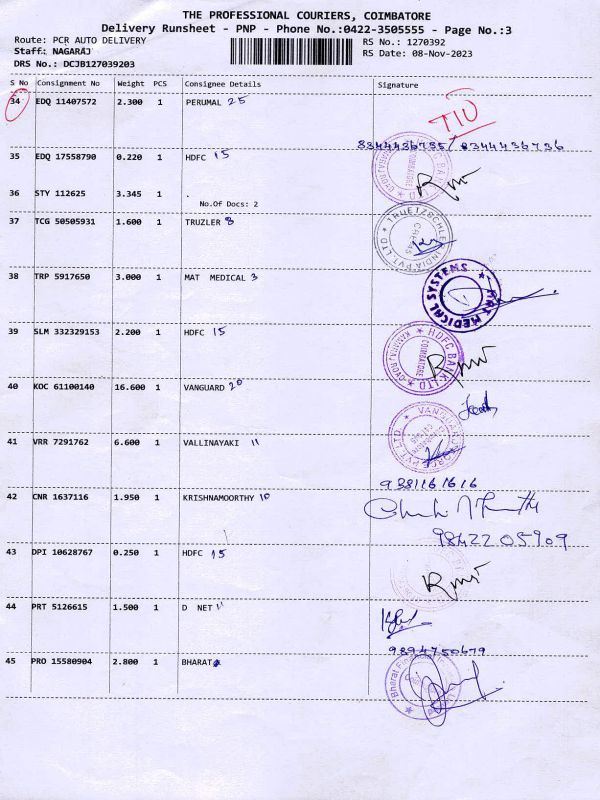 THE PROFESSIONAL COURIERS, COIMBATORE
Delivery Runsheet - PNP - Phone No.:0422-3505555 - Page No.:3
Route: PCR AUTO DELIVERY RS No.: 1270392
Staff: NAGARAJ RS Date: 08-Nov-2023
DRS No.: DCJB127039203
S No Consignment No Weight PCS Consignee Details Signature
34 EDQ 11407572 2.300 1 PERUMAL 25
8344436735/8344436736
35 EDQ 17558790 0.220 1 HDFC 15
36 STY 112625 3.345 1 .
No.Of Docs: 2
37 TCG 50505931 1.600 1 TRUZLER 8
38 TRP 5917650 3.000 1 MAT MEDICAL 3
MAT MEDICAL SYSTEMS
39 SLM 332329153 2.200 1 HDFC 15
HDFC BANK LTD COIMBATORE
40 KOC 61100140 16.600 1 VANGUARD 20
41 VRR 7291762 6.600 1 VALLINAYAKI 11
9381161616
42 CNR 1637116 1.950 1 KRISHNAMOORTHY 10
9842205909
43 DPI 10628767 0.250 1 HDFC 15
44 PRT 5126615 1.500 1 D NET 11
9894750679
45 PRO 15580904 2.800 1 BHARAT